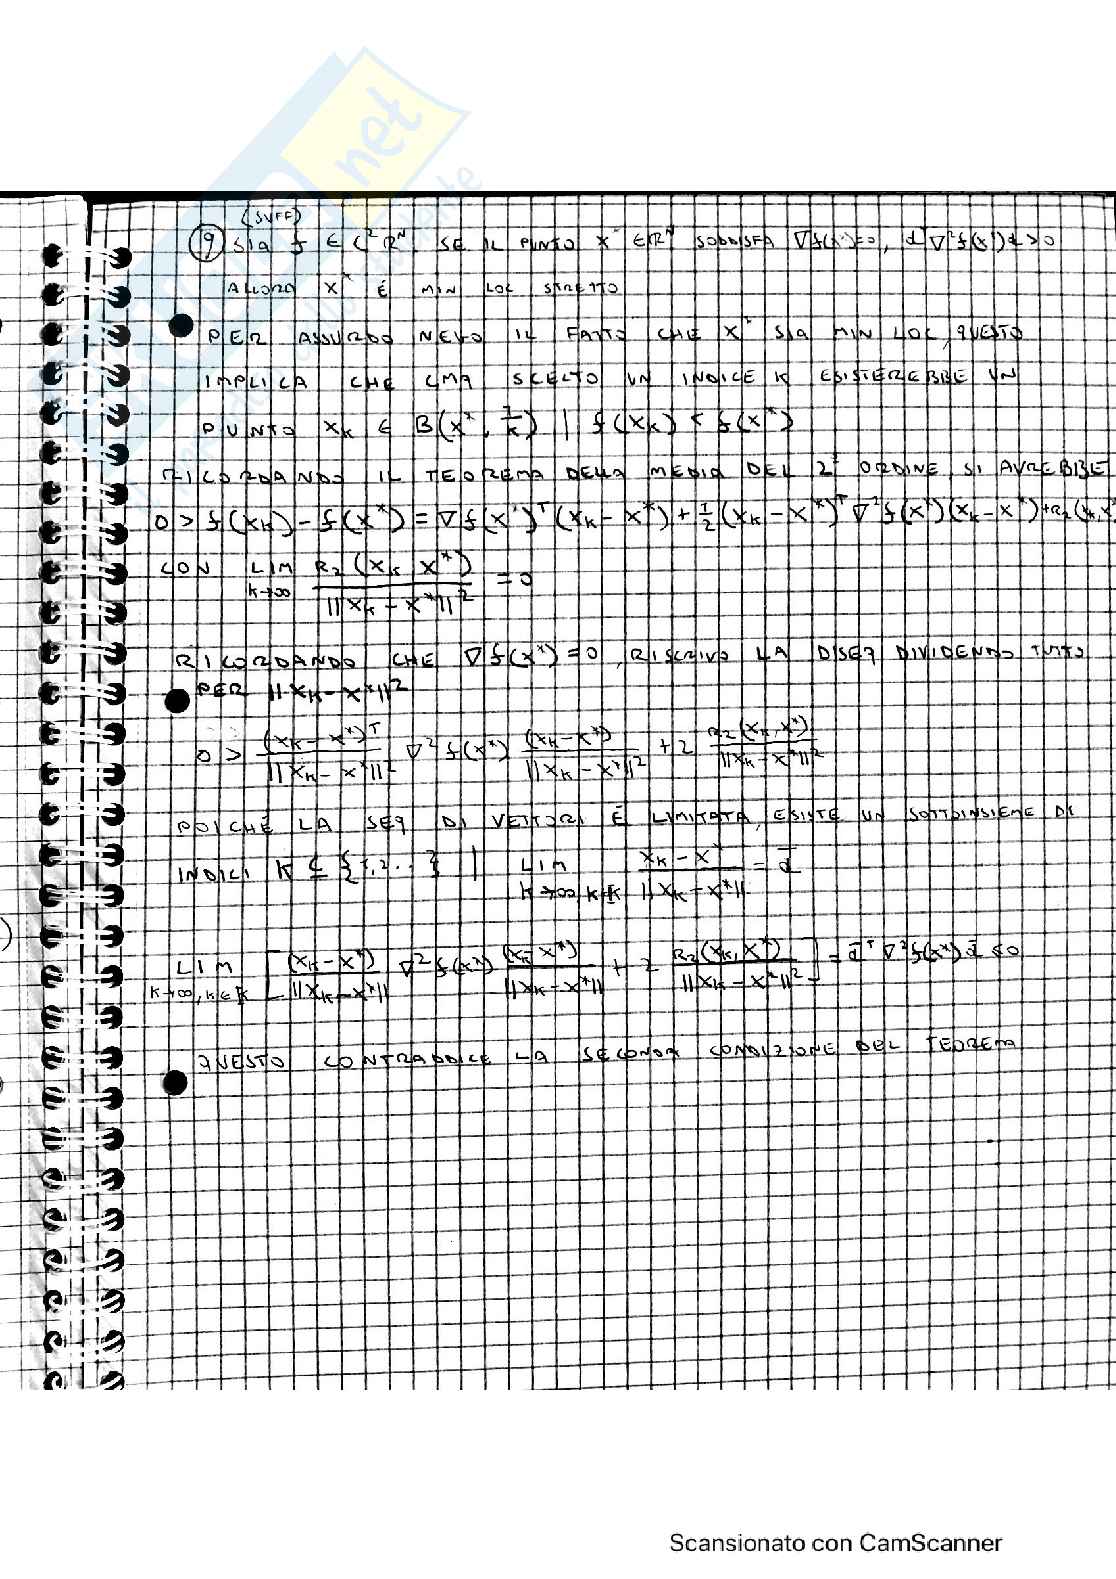 (SUFF)
⑨ SIA f ∈ C² Rᴺ. SE IL PUNTO X* ∈ Rᴺ SODDISFA ∇f(x*)=0, dᵀ∇²f(x*)d>0
ALLORA X* É MIN LOC STRETTO
PER ASSURDO NEGO IL FATTO CHE X* SIA MIN LOC, QUESTO
IMPLICA CHE UNA SCELTO UN INDICE K ESISTEREBBE UN
PUNTO Xₖ ∈ B(x*, 1/k) | f(xₖ) < f(x*)
RICORDANDO IL TEOREMA DELLA MEDIA DEL 2° ORDINE SI AVREBBE
0 > f(xₖ) - f(x*) = ∇f(x*)ᵀ(xₖ - x*) + 1/2 (xₖ - x*)ᵀ ∇²f(x*)(xₖ - x*) + R₂(xₖ, x*
CON LIM k→∞ R₂(xₖ, x*) / ||xₖ - x*||² = 0
RICORDANDO CHE ∇f(x*)=0, RISCRIVO LA DISEQ DIVIDENDO TUTTO
PER ||xₖ - x*||²
0 > (xₖ - x*)ᵀ / ||xₖ - x*||² ∇²f(x*) (xₖ - x*) / ||xₖ - x*||² + 2 R₂(xₖ, x*) / ||xₖ - x*||²
POICHÉ LA SEQ DI VETTORI É LIMITATA, ESISTE UN SOTTOINSIEME DI
INDICI K ⊆ {1,2...} | LIM k→∞, k∈K xₖ - x* / ||xₖ - x*|| = d̄
LIM k→∞, k∈K [(xₖ - x*) / ||xₖ - x*|| ∇²f(x*) (xₖ - x*) / ||xₖ - x*|| + 2 R₂(xₖ, x*) / ||xₖ - x*||²] = d̄ᵀ ∇²f(x*) d̄ ≤ 0
QUESTO CONTRADDICE LA SECONDA CONDIZIONE DEL TEOREMA
Scansionato con CamScanner